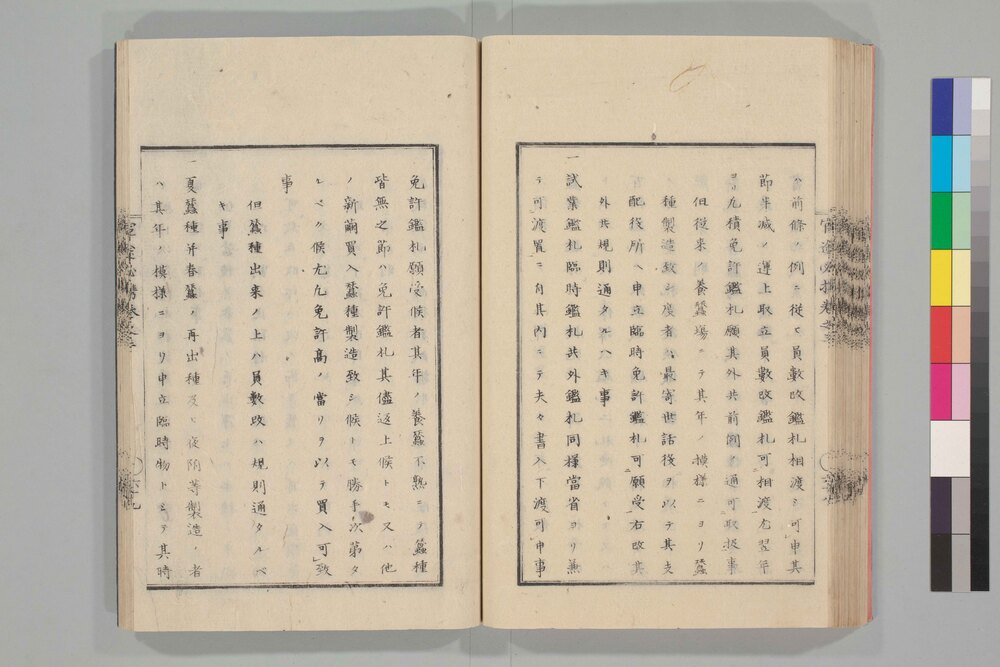 ハ前條ノ例ニ從ヒ員數改鑑札相渡シ可申其
節半減ノ運上取立員數改鑑札可相渡尤翌年
免許鑑札願其外共前例ノ通可取扱事
但從来ノ養蠶場ニテ其年ノ摸様ニヨリ蠶
種製造致シ度者ハ最寄世話役ヲ以テ其支
配役所ヘ申立臨時免許鑑札可願受右改其
外共規則通タルヘキ事
一試業鑑札臨時鑑札共外鑑札同様當省ヨリ兼
テ可渡置ニ付其内ニテ夫々書入下渡可申事
免許鑑札願受候者其年ノ養蠶不熟ニテ蠶種
皆無之節ハ免許鑑札其儘返上候トモ又ハ他
ノ新繭買入蠶種製造致シ候トモ勝手次第タ
ルヘク候尤九免許高ノ當リヲ以テ買入可致
事
但蠶種出来ノ上ハ員數改ハ規則通タルベ
キ事
一夏蠶種并春蠶ノ再出種及ヒ夜附等製造ノ者
ハ其年ノ摸様ニヨリ申立臨時物トシテ其時